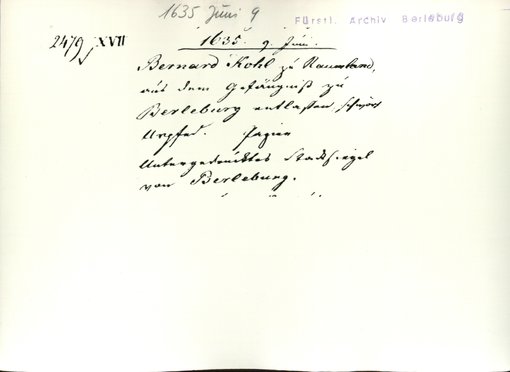 1635 Juni 9
Fürstl. Archiv Berleburg
2479 j XVII
1635. 9. Juni.
Bernard Kohl zu Raumland,
aus dem Gefängniß zu
Berleburg entlassen, schwört
Urpfed. Papier
Untergedrucktes Stadtsiegel
von Berleburg.